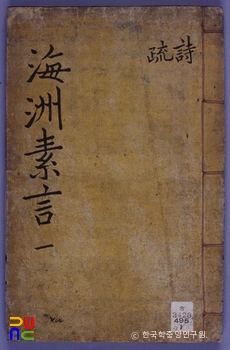 海洲素言 一
詩
疏
495
1
ⓒ 한국학중앙연구원